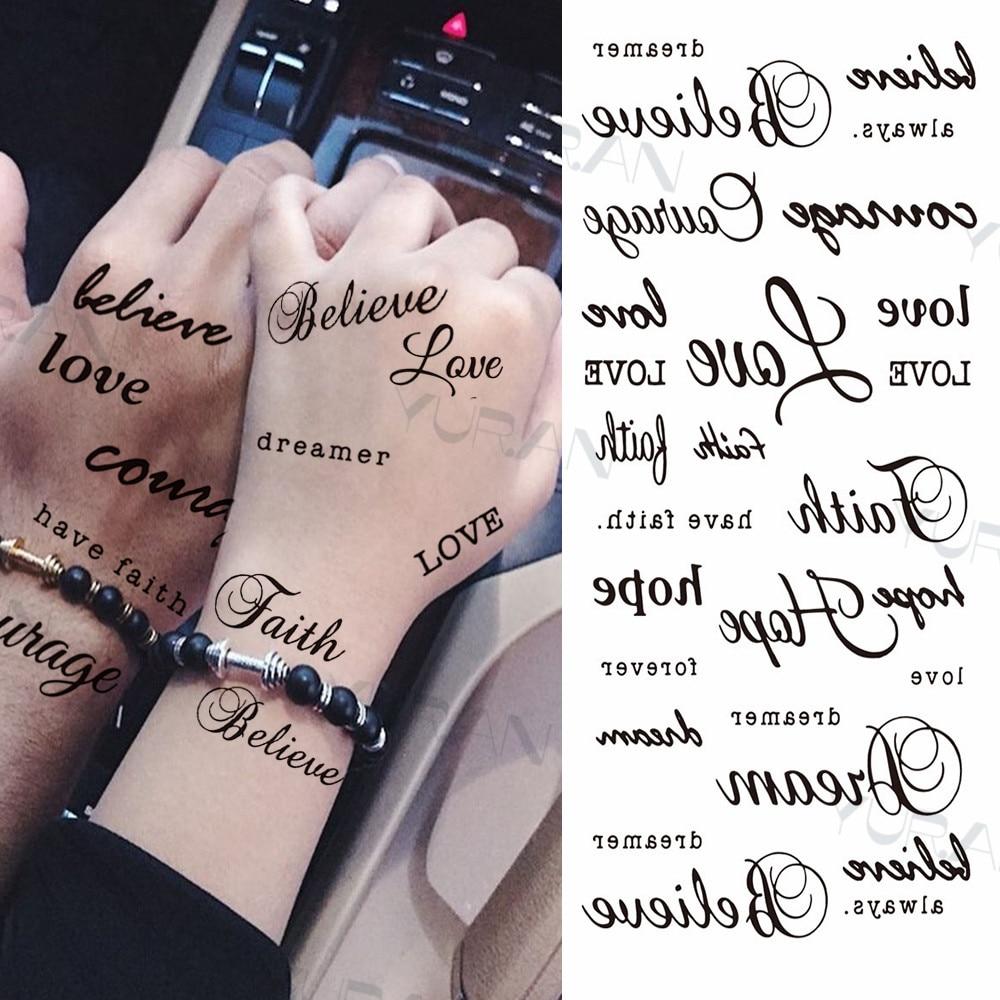 believe
love
coura
have faith
urage
Believe
Love
dreamer
LOVE
Faith
Believe
MENU
YURAN
dreamer
believe
Believe
always.
Courage courage
love love
Love
LOVE LOVE
faith faith
Faith
have faith.
hope hope
Hope
forever love
dream dreamer
Dream
dreamer
believe
Believe
always.